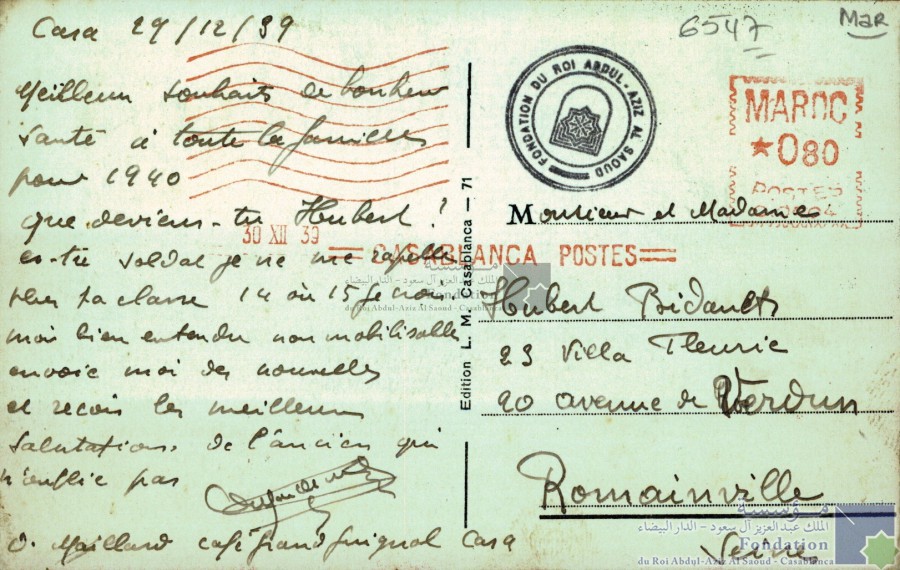 Casa 29/12/39
Meilleurs souhaits de bonheur
santé à toute la famille
pour 1940
que deviens-tu Hubert ?
es-tu soldat je ne me rapelle
plus ta classe 14 ou 15 je crois
moi bien entendu non mobilisable
envoie moi des nouvelles
et reçois les meilleurs
salutations de l'ancien qui
n'oublie pas
O. Maillard café grand guignol Casa
Edition L. M. Casablanca — 71
6547
Mar
FONDATION DU ROI ABDUL-AZIZ AL SAOUD
MAROC
★080
POSTES
30 XII 39
CASABLANCA POSTES
Monsieur et Madame
Hubert Bidault
23 Villa Fleurie
90 avenue de Verdun
Romainville
Seine
مؤسسة
الملك عبد العزيز آل سعود - الدار البيضاء
Fondation
du Roi Abdul-Aziz Al Saoud - Casablanca
مؤسسة
الملك عبد العزيز آل سعود - الدار البيضاء
Fondation
du Roi Abdul-Aziz Al Saoud - Casablanca